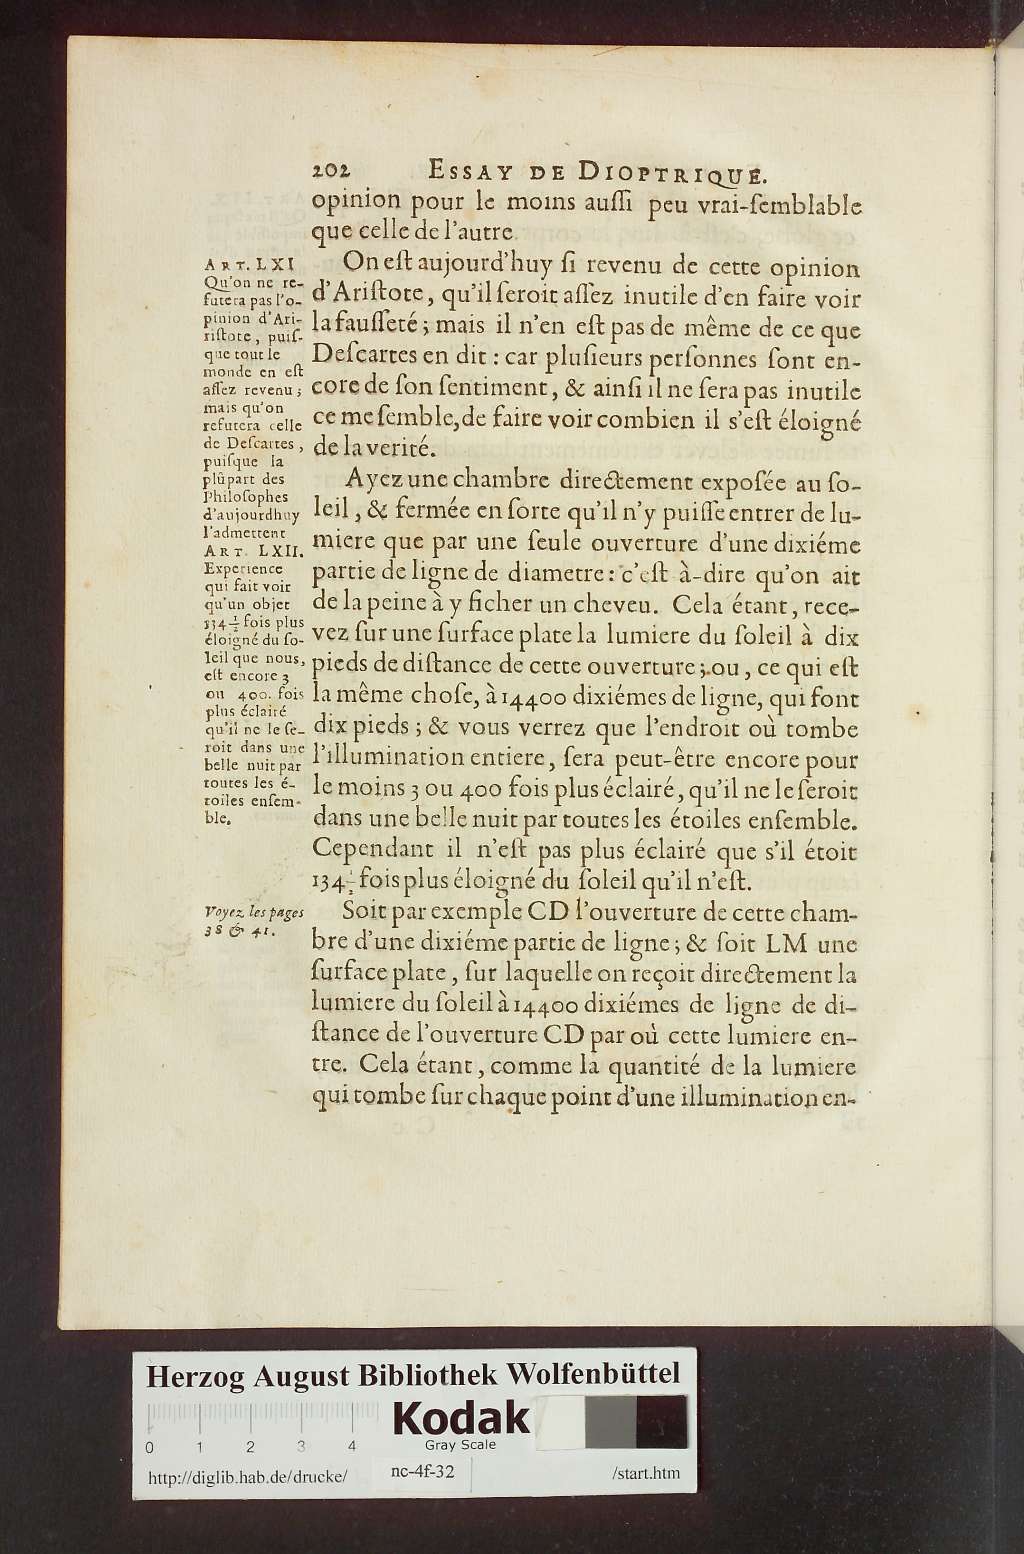 202 ESSAY DE DIOPTRIQUE.
opinion pour le moins auſſi peu vrai-ſemblable
que celle de l'autre.
On eſt aujourd'huy ſi revenu de cette opinion
d'Ariſtote, qu'il ſeroit aſſez inutile d'en faire voir
la fauſſeté; mais il n'en eſt pas de même de ce que
Deſcartes en dit : car pluſieurs perſonnes ſont en-
core de ſon ſentiment, & ainſi il ne ſera pas inutile
ce me ſemble, de faire voir combien il s'eſt éloigné
de la verité.
Ayez une chambre directement expoſée au ſo-
leil, & fermée en ſorte qu'il n'y puiſſe entrer de lu-
miere que par une ſeule ouverture d'une dixiéme
partie de ligne de diametre: c'eſt à-dire qu'on ait
de la peine à y ficher un cheveu. Cela étant, rece-
vez ſur une ſurface plate la lumiere du ſoleil à dix
pieds de diſtance de cette ouverture; ou, ce qui eſt
la même choſe, à 14400 dixiémes de ligne, qui font
dix pieds ; & vous verrez que l'endroit où tombe
l'illumination entiere, ſera peut-être encore pour
le moins 3 ou 400 fois plus éclairé, qu'il ne le ſeroit
dans une belle nuit par toutes les étoiles enſemble.
Cependant il n'eſt pas plus éclairé que s'il étoit
134 1/2 fois plus éloigné du ſoleil qu'il n'eſt.
Soit par exemple CD l'ouverture de cette cham-
bre d'une dixiéme partie de ligne; & ſoit LM une
ſurface plate, ſur laquelle on reçoit directement la
lumiere du ſoleil à 14400 dixiémes de ligne de di-
ſtance de l'ouverture CD par où cette lumiere en-
tre. Cela étant, comme la quantité de la lumiere
qui tombe ſur chaque point d'une illumination en-
ART. LXI
Qu'on ne re-
futera pas l'o-
pinion d'Ari-
riſtote, puiſ-
que tout le
monde en eſt
aſſez revenu;
mais qu'on
refutera celle
de Deſcartes,
puiſque la
plûpart des
Philoſophes
d'aujourdhuy
l'admettent
ART. LXII.
Experience
qui fait voir
qu'un objet
134 1/2 fois plus
éloigné du ſo-
leil que nous,
eſt encore 3
ou 400. fois
plus éclairé
qu'il ne le ſe-
roit dans une
belle nuit par
toutes les é-
toiles enſem-
ble.
Voyez les pages
38 & 41.
Herzog August Bibliothek Wolfenbüttel
0 1 2 3 4
Kodak
Gray Scale
http://diglib.hab.de/drucke/ nc-4f-32 /start.htm